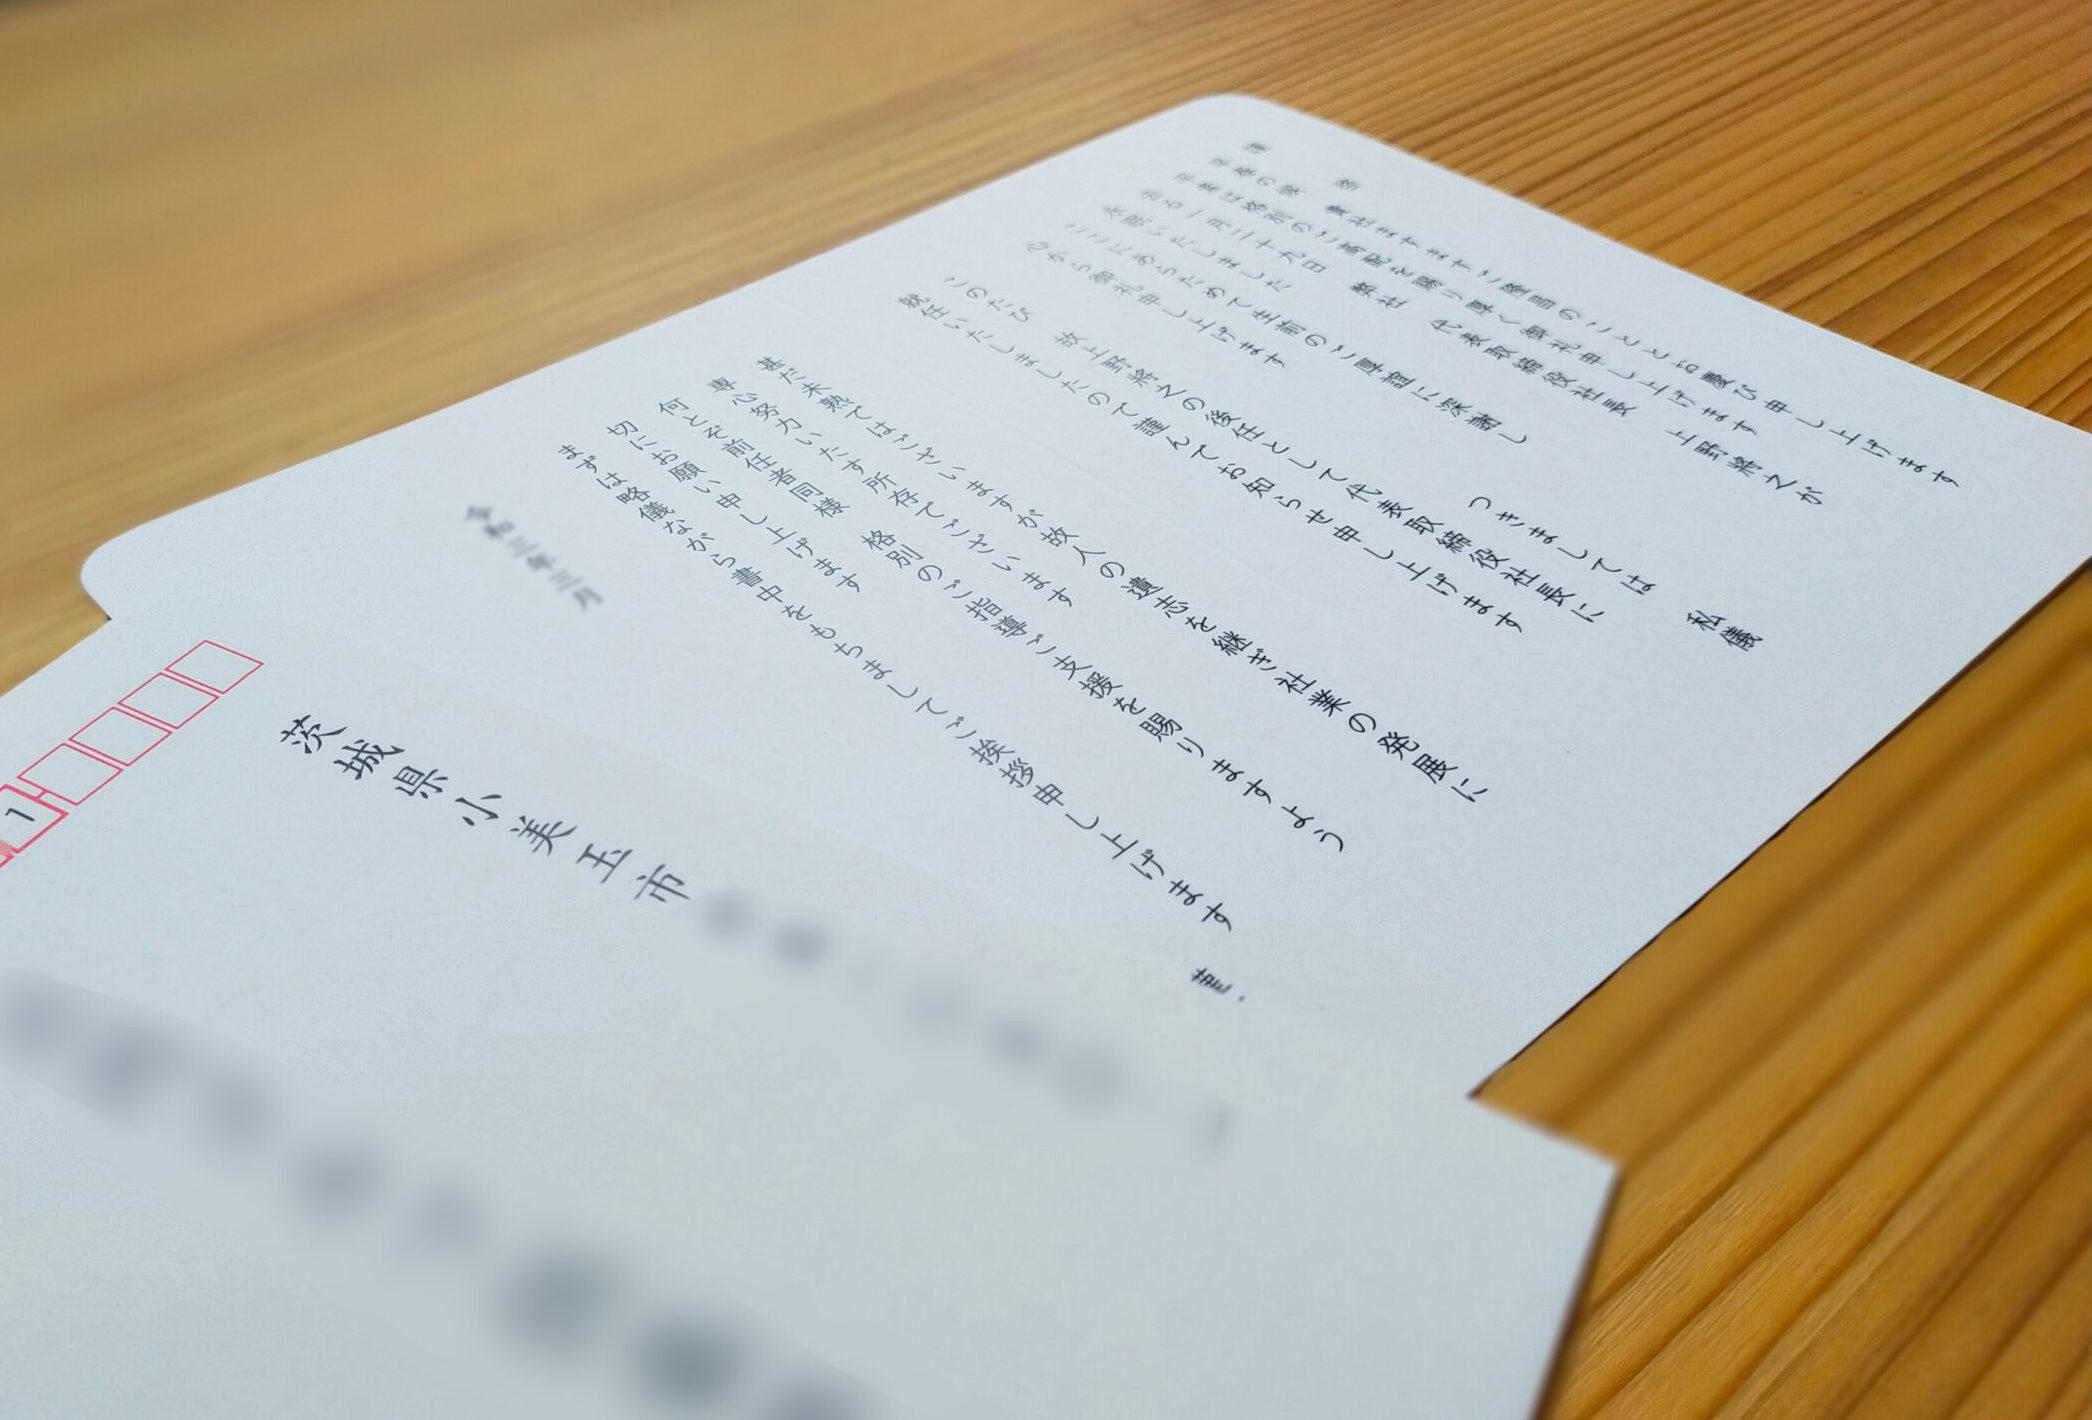 謹啓
早春の候 貴社ますますご隆昌のこととお慶び申し上げます
平素は格別のご高配を賜り厚く御礼申し上げます
去る一月二十九日 弊社 代表取締役社長 上野將之が
永眠いたしました
ここにあらためて生前のご厚誼に深謝し
心から御礼申し上げます
つきましては 私儀
このたび 故上野將之の後任として代表取締役社長に
就任いたしましたので謹んでお知らせ申し上げます
甚だ未熟ではございますが故人の遺志を継ぎ社業の発展に
専心努力いたす所存でございます
何とぞ前任者同様 格別のご指導ご支援を賜りますよう
切にお願い申し上げます
まずは略儀ながら書中をもちましてご挨拶申し上げます
令和三年三月
1
茨城県小美玉市